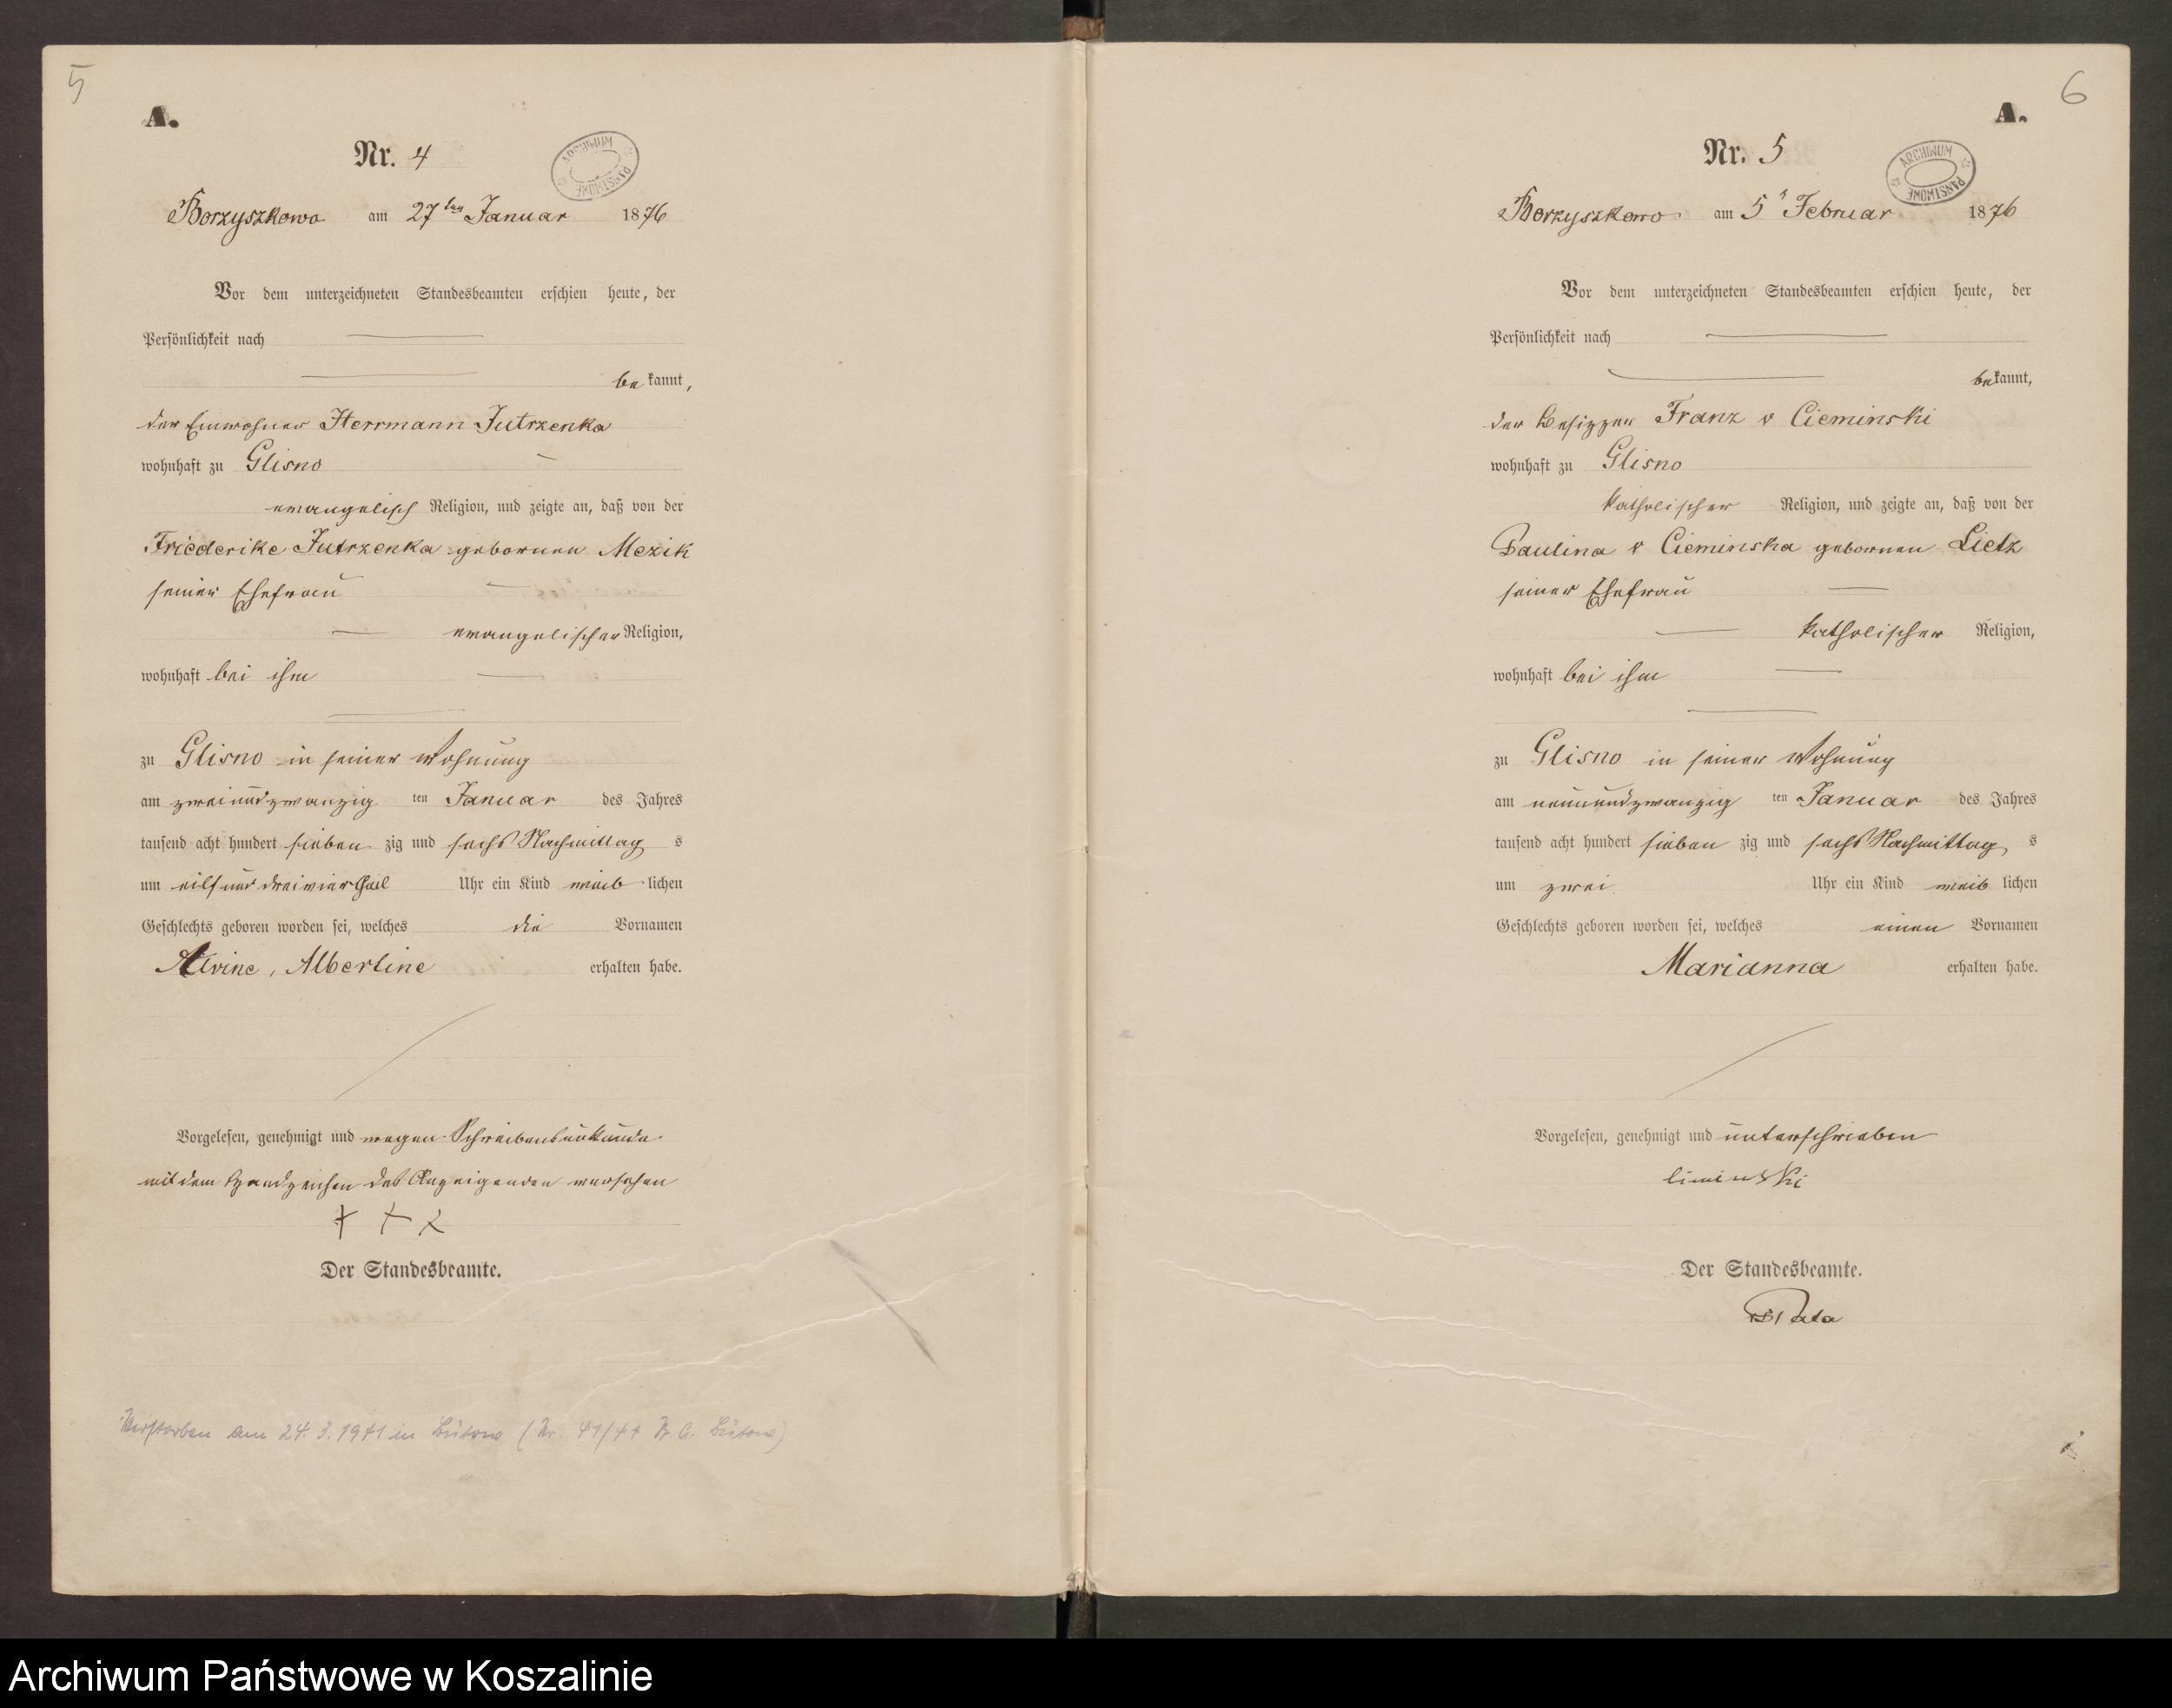 5
A.
Nr. 4
ARCHIWUM PAŃSTWOWE
Borzyszkowo am 27ten Januar 1876
Vor dem unterzeichneten Standesbeamten erschien heute, der
Persönlichkeit nach
bekannt,
der Einwohner Herrmann Jutrzenka
wohnhaft zu Glisno
evangelisch Religion, und zeigte an, daß von der
Friederike Jutrzenka gebornen Mezik
seiner Ehefrau
evangelischer Religion,
wohnhaft bei ihm
zu Glisno in seiner Wohnung
am zweiundzwanzig ten Januar des Jahres
tausend acht hundert sieben zig und sechs Nachmittag s
um eilf und dreiviertheil Uhr ein Kind weib lichen
Geschlechts geboren worden sei, welches die Vornamen
Alvine, Albertine erhalten habe.
Vorgelesen, genehmigt und wegen Schreibensunkunde
mit dem Handzeichen des Anzeigenden versehen
+ + +
Der Standesbeamte.
Verstorben am 24.3.1941 in Bütow (Nr. 41/41 St. A. Bütow)
6
A.
Nr. 5
ARCHIWUM PAŃSTWOWE
Borzyszkowo am 5 Februar 1876
Vor dem unterzeichneten Standesbeamten erschien heute, der
Persönlichkeit nach
bekannt,
der Besitzer Franz v Cieminski
wohnhaft zu Glisno
katholischer Religion, und zeigte an, daß von der
Paulina v Cieminska gebornen Lietz
seiner Ehefrau
katholischer Religion,
wohnhaft bei ihm
zu Glisno in seiner Wohnung
am neunundzwanzig ten Januar des Jahres
tausend acht hundert sieben zig und sechs Nachmittag s
um zwei Uhr ein Kind weib lichen
Geschlechts geboren worden sei, welches einen Vornamen
Marianna erhalten habe.
Vorgelesen, genehmigt und unterschrieben
Der Standesbeamte.
Archiwum Państwowe w Koszalinie